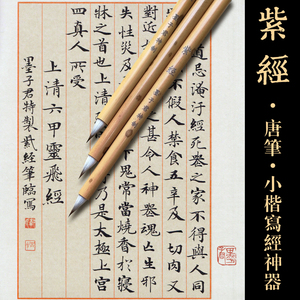 紫經
·唐筆·小楷寫經神器
道忌淹汙經死喪之家不得與人同
不假人禁食五辛及一切肉又
對近
之甚令人神喪魂亡生邪
失性災及
下鬼常當燒香於寢
牀之首也上清
乃是太極上宮
四真人所受
上清六甲靈飛經
墨子君特製紫經筆臨寫